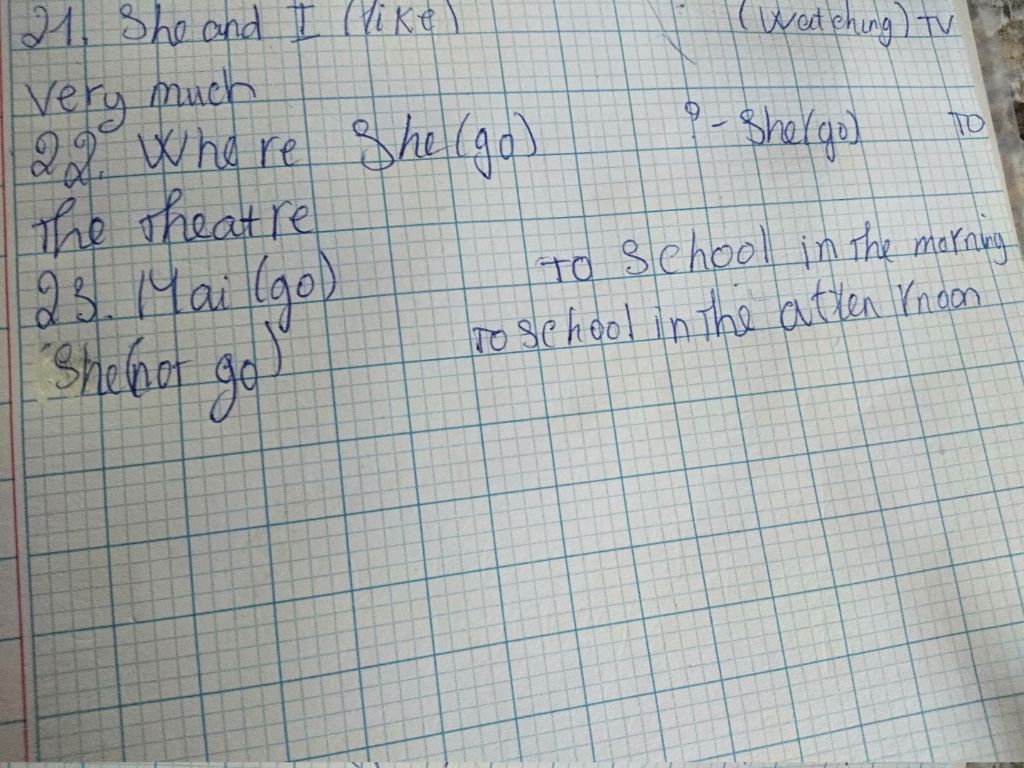 21. She and I (like) (watching) TV
very much
22. Whare She (go) ? - She (go) TO
The Theatre
23. Mai (go) TO School in The morning
She (not go) TO School in The atten rnoon